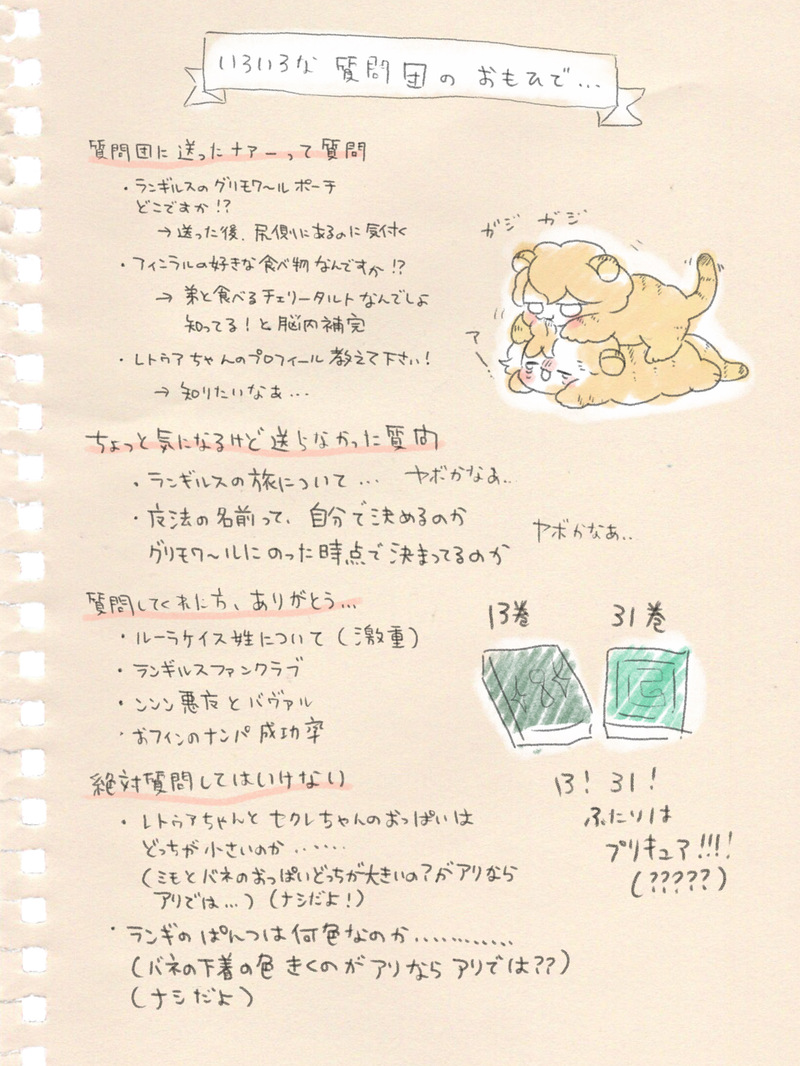 いろいろな 質問団の おもひで…
質問団に送ったナァーって質問
・ランギルスのグリモワ〜ルポーチ
どこですか!?
→送った後、尻側にあるのに気付く
・フィンラルの好きな食べ物なんですか!?
→弟と食べるチェリータルトなんでしょ
知ってる!と脳内補完
・レトゥアちゃんのプロフィール教えて下さい!
→知りたいなぁ…
ガジ ガジ
ア
ちょっと気になるけど送らなかった質問
・ランギルスの旅について… ヤボかなぁ..
・魔法の名前って、自分で決めるのか
グリモワ〜ルにのった時点で決まってるのか
ヤボかなぁ..
質問してくれた方、ありがとう…
・ルーラケイス姓について(激重)
・ランギルスファンクラブ
・ンンン悪夜とバヴァル
・おフィンのナンパ成功率
13巻 31巻
13! 31!
ふたりは
プリキュア!!!!
(?????)
絶対質問してはいけない
・レトゥアちゃんとセクレちゃんのおっぱいは
どっちが小さいのか……
(ミモとバネのおっぱいどっちが大きいの?がアリなら
アリでは…)(ナシだよ!)
・ランギのぱんつは何色なのか…………
(バネの下着の色きくのがアリならアリでは??)
(ナシだよ)